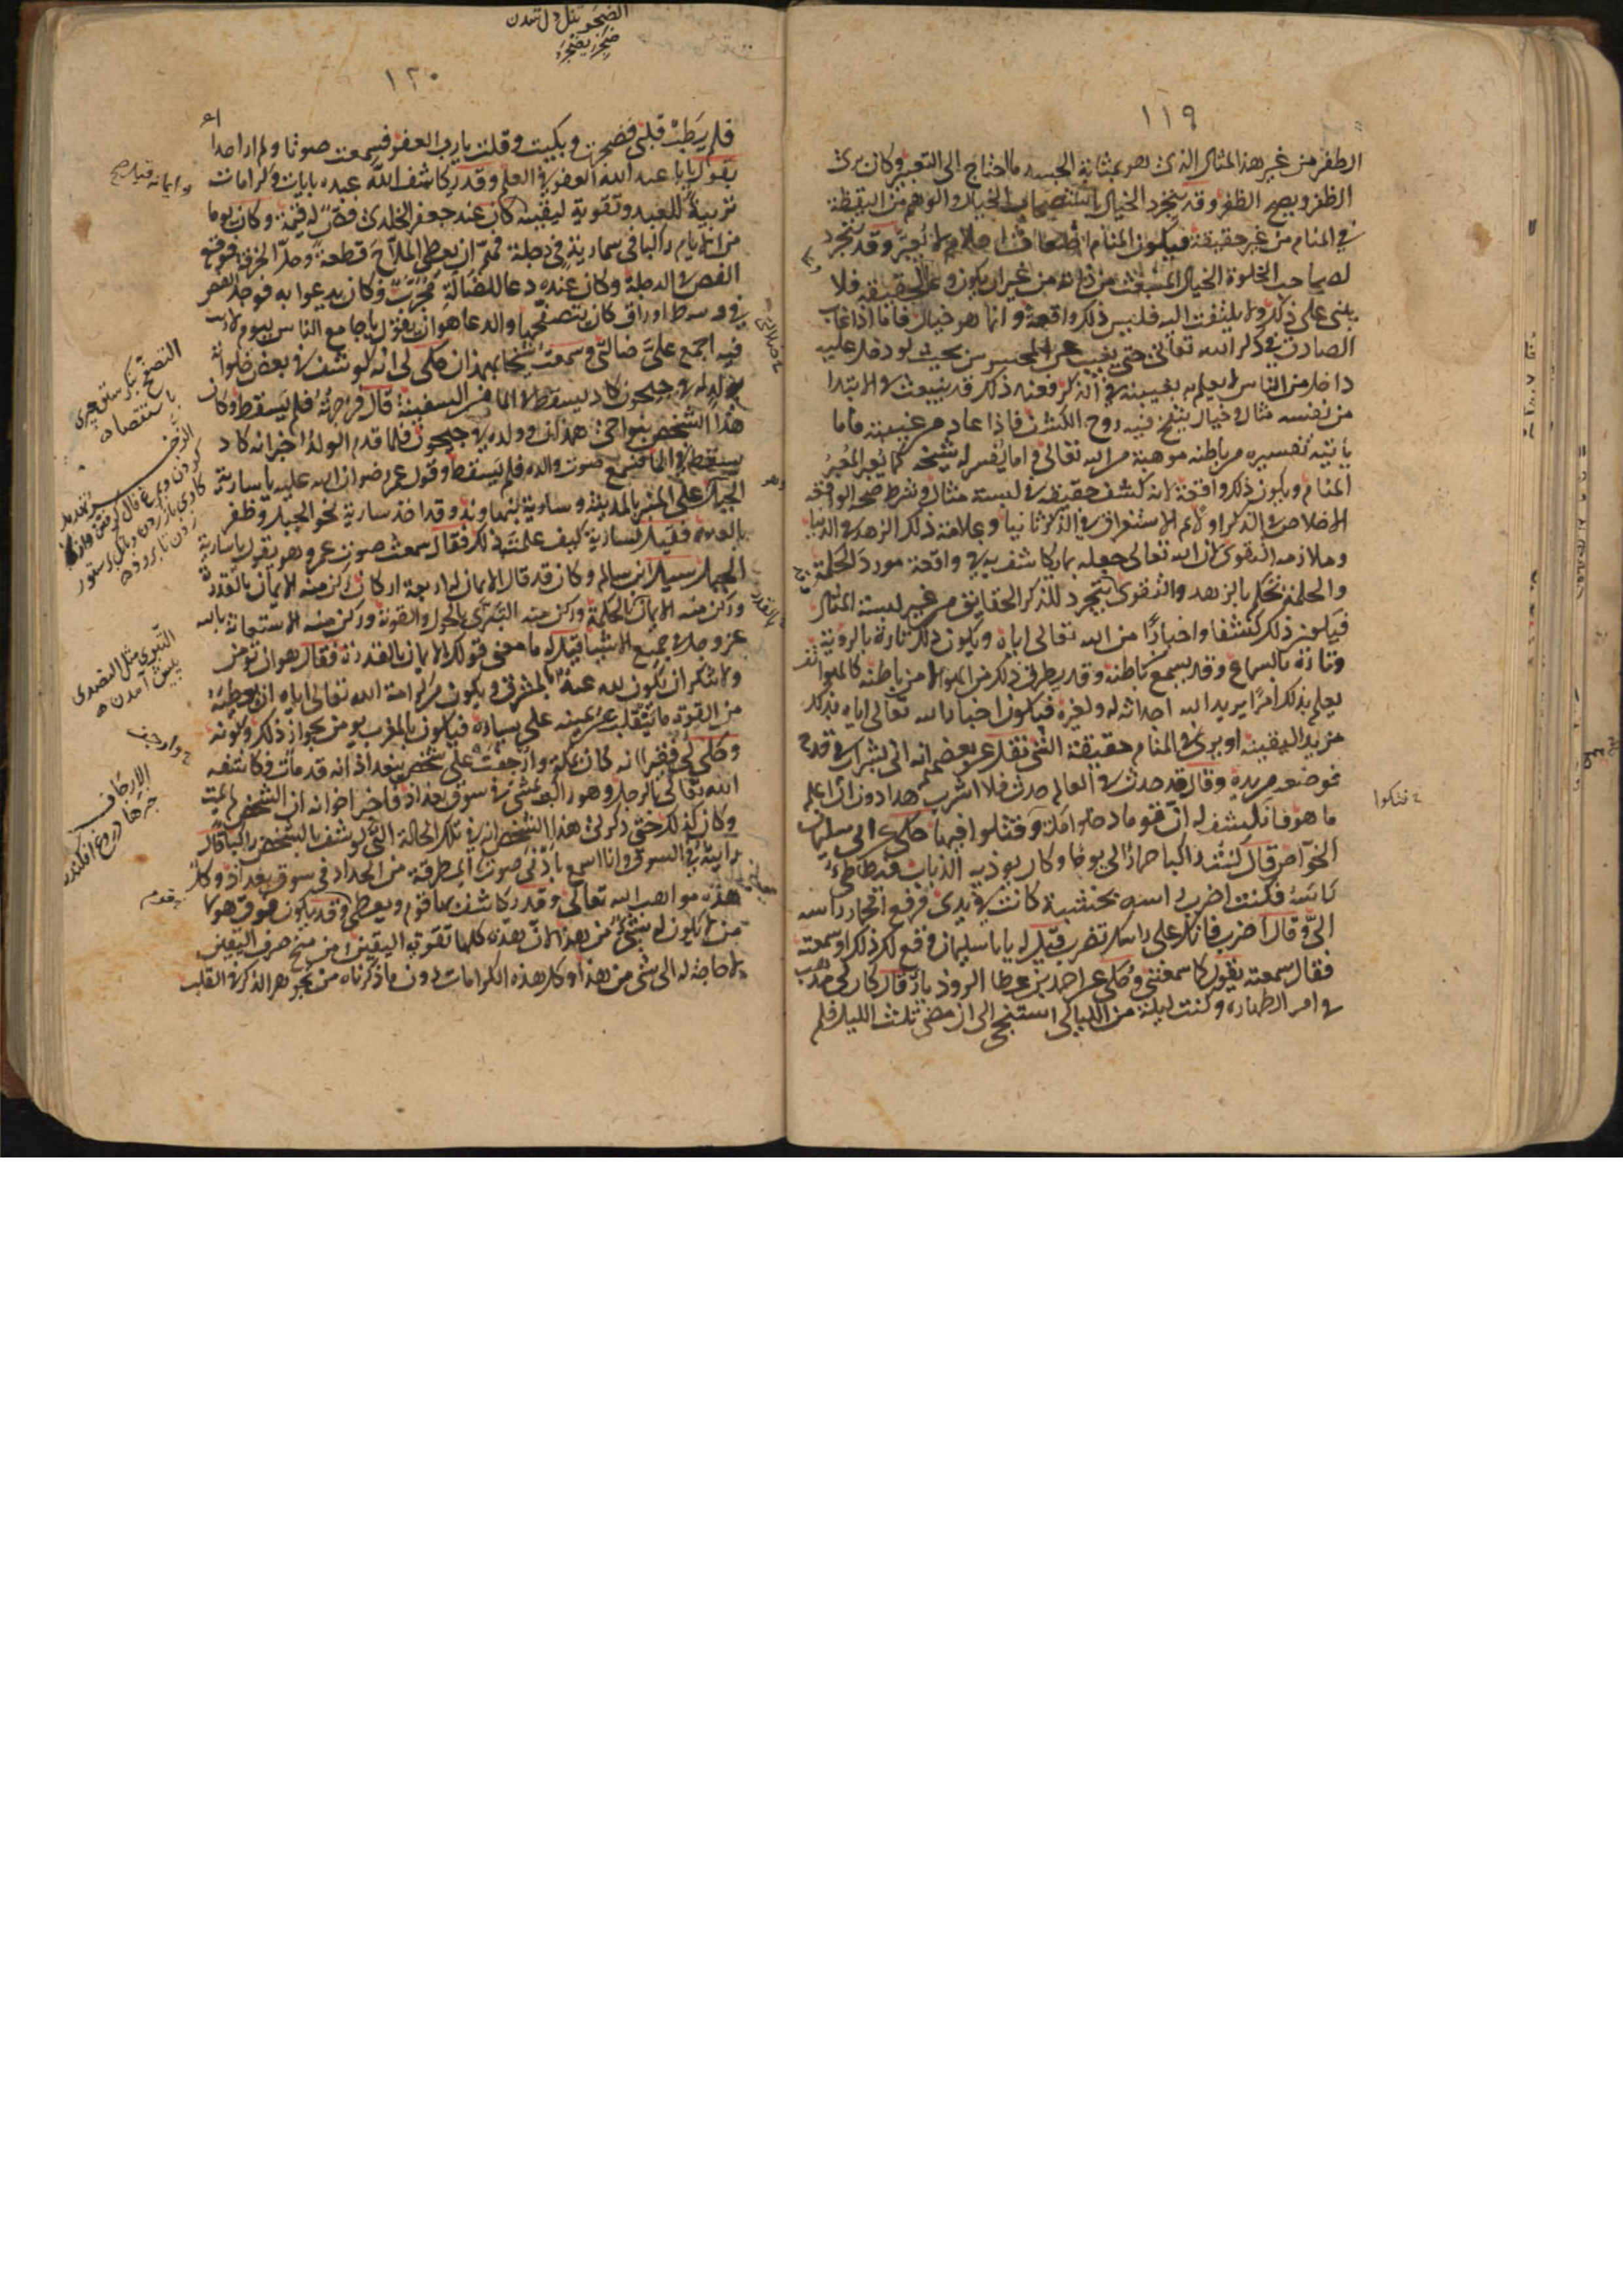 ١١٩
الظفر من غير هذا المثال الذى هو بمثابة الجسد ما احتاج الى التعبير وكان يرى
الظفر ويصح الظفر وقد يتجرد الخيال باستصحاب الخيال والوهم من اليقظة
فى المنام من غير حقيقة فيكون المنام اضغاث احلام لا يعبر وقد يتجرد
لصاحب الخلوة الخيال المنبعث من ذاته من غير ان يكون وعاء لحقيقة فلا
يبنى على ذلك ولا يلتفت اليه فليس ذلك واقعة وانما هو خيال فاما اذا غاب
الصادق فى ذكر الله تعالى حتى يغيب عن المحسوس بحيث لو دخل عليه
داخل من الناس لا يعلم به لغيبته فى الذكر فعند ذلك قد ينبعث فى الابتدا
من نفسه مثال وخيال ينفخ فيه روح الكشف فاذا عاد من غيبته فاما
ياتيه تفسيره من باطنه موهبة من الله تعالى واما يفسر له شيخه كما يعبر المعبر
المنام ويكون ذلك واقعة لانه كشف حقيقة فى لبسة مثال وشرط صحة الواقعة
الاخلاص فى الذكر اولا ثم الاستغراق فى الذكر ثانيا وعلامة ذلك الزهد فى الدنيا
وملازمة التقوى لان الله تعالى جعله بما يكاشف به فى واقعة مورد الحكمة
والحكمة تحكم بالزهد والتقوى وقد يتجرد للذاكر الحقايق من غير لبسة المثال
فيكون ذلك كشفا واخبارًا من الله تعالى اياه ويكون ذلك تارة بالروية
وتارة بالسماع وقد يسمع من باطنه وقد يطرق ذلك من الهوا لا من باطنه كالهواتف
يعلم بذلك امرًا يريد الله احداثه له او لغيره فيكون اخبار الله تعالى اياه بذلك
مزيد اليقينه او يرى فى المنام حقيقة الشى نقل عن بعضهم انه اتى بشراب فى قدح
فوضعه من يده وقال قد حدث فى العالم حدث فلا اشرب هذا دون ان اعلم
ما هو فانكشف له ان قوما دخلوا مكة وقتلوا فيها حكى عن ابى سليمان
الخواص قال كنت راكبا حمارًا لى يوما وكان يوذيه الذباب فيطاطى
راسه فكنت اضرب راسه بخشبة كانت فى يدى فرفع الحمار راسه
الىّ وقال اضرب فانك على راسك تضرب قيل له يا با سليمان وقع لك ذلك او سمعته
فقال سمعته يقول كما سمعتنى وحكى عن احمد بن عطا الروذبارى قال كان لى مذهب
فى امر الطهارة وكنت ليلة من الليالى استنجى الى ان مضى ثلث الليل فلم
١٢٠
فلم يطب قلبى فضجرت وبكيت وقلت يا رب العفو فسمعت صوتا ولم ار احدا
يقول يا با عبد الله العفو فى العلم وقد يكاشف الله عبده بايات وكرامات
تربية للعبد وتقوية ليقينه كان عند جعفر الخلدى فص له قيمة وكان يوما
من الايام راكبا فى سمارية فى دجلة فهم ان يعطى الملاح قطعة وحل الخرقة فوقع
الفص فى الدجلة وكان عنده دعا للضالة مجرب وكان يدعوا به فوجد الفص
فى وسط اوراق كان يتصفحها والدعا هو ان يقول يا جامع الناس ليوم لا ريب
فيه اجمع على ضالتى وسمعت شيخا بهمذان حكى لى انه كوشف فى بعض خلواته
بولد له فى جيحون كاد يسقط فى الما من السفينة قال فزجرته فلم يسقط وكان
هذا الشخص بنواحى همذان وولده بجيحون فلما قدم الولد اخبر انه كاد
يسقط فى الما فسمع صوت والده فلم يسقط وقول عمر رضوان الله عليه يا سارية
الجبل على المنبر بالمدينة وسارية بنهاوند وقد اخذ سارية نحو الجبل وظفر
بالعدو فقيل لسارية كيف علمت ذلك فقال سمعت صوت عمر وهو يقول يا سارية
الجبل سيل ابن سالم وكان قد قال للايمان اربعة اركان ركن منه الايمان بالقدرة
وركن منه الايمان بالحكمة وركن منه التبرى من الحول والقوة وركن منه الاستعانة بالله
عز وجل فى جميع الاشيا قيل له ما معنى قولك الايمان بالقدرة فقال هو ان تومن
ولا تنكر ان يكون لله عبد بالمشرق ويكون من كرامة الله تعالى اياه ان يعطيه
من القوة ما ينقلب عن يمينه على يساره فيكون بالمغرب يومن بجواز ذلك وكونه
وحكى لى فقير انه كان بمكة وارجفت على شخص ببغداذ انه قد مات فكاشفه
الله تعالى بالرجل وهو راكب يمشى فى سوق بغداذ فاخبر اخوانه ان الشخص لم يمت
وكان كذلك حتى ذكر لى هذا الشخص انه فى تلك الحالة التى كوشف بالشخص راكبا قال
رايته فى السوق وانا اسمع باذنى صوت المطرقة من الحداد فى سوق بغداذ وكل
هذه مواهب الله تعالى وقد يكاشف بها قوم ويعطى وقد يكون فوق هولا
من لا يكون له شى من هذا لان هذه كلها تقوية اليقين ومن منح صرف اليقين
لا حاجة له الى شى من هذا وكل هذه الكرامات دون ما ذكرناه من تجوهر الذكر فى القلب
التصفح نكرستن چيزى
باستقصا
التبرى مثل التصدى
پيش آمدن
الارجاف
خبرها دروغ افكندن